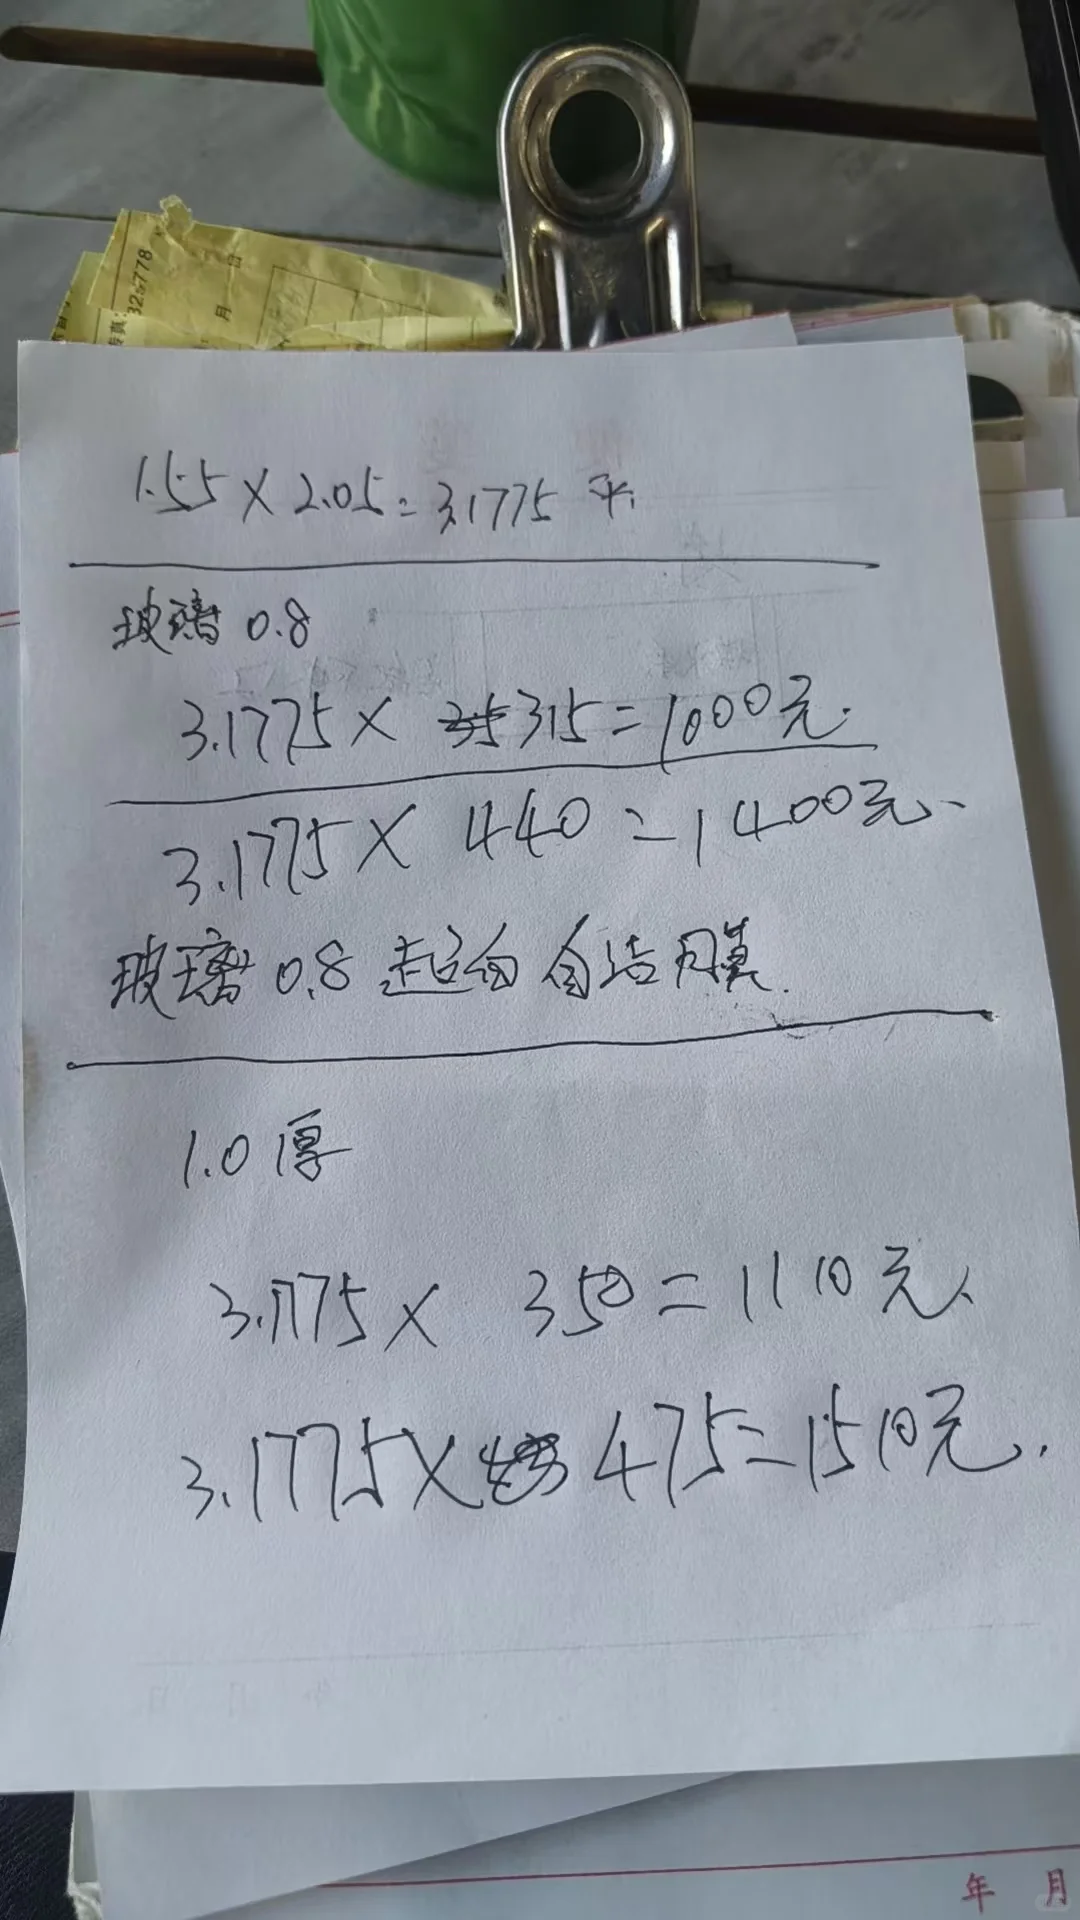 325778
月
日
1.55×2.05=3.1775平
玻璃0.8
3.1775×315=1000元.
3.1775×440=1400元.
玻璃0.8超白自洁膜.
1.0厚
3.1775×350=1110元.
3.1775×475=1510元.
年 月